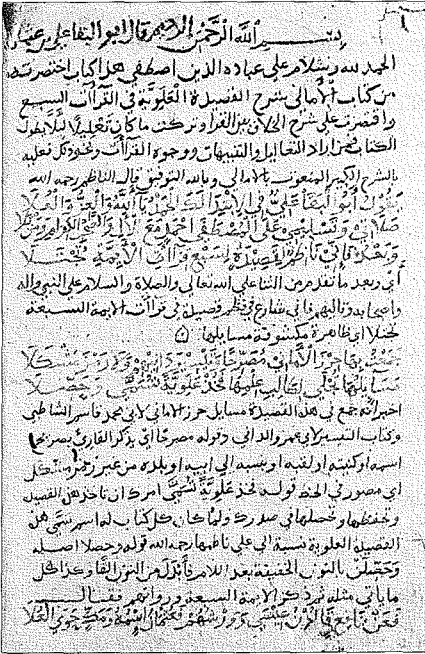 بسم الله الرحمن الرحيم قال ابو البقا علي بن عثمان
الحمد لله وسلام على عباده الذين اصطفى هذا كتاب اختصرته
من كتاب الأمالي شرح القصيدة العلوية في القرآات السبع
واقتصرت على شرح الخلاف بين القرا وتركت ما كان تعليلا ليلا يطول
الكتاب فمن اراد التعاليل والتنبيهات ووجوه القرآات ونحو ذلك فعليه
بالشرح الكبير المنعوت بالامالي وبالله التوفيق قال الناظم رحمه الله
يقول أبو البقا علي الحمد لله العلا
صلاتي وتسليمي على المصطفى احمد مع لال والصحب الكرام ومن
وبعد فاني ناظم لقصيدة لسبع قراآت الأيمة تجتلا
أي وبعد ما تقدم من الثنا على الله تعالى والصلاة والسلام على النبي واله
واصحابه وتاليهم فاني شارع في نظم قصيدة في قراآت الايمة السبعة
تجتلا اي ظاهرة مكشوفة مسايلها
جمعت بها حرز الأماني مصرحا وقد رمز مشكلا
مسايلها خذ علوية تسمى وحصلا
اخبر انه جمع في هذه القصيدة مسايل حرز الاماني لابي محمد قاسم الشاطبي
وكتاب التيسير لابي عمرو الداني وقوله مصرحا اي بذكر القارئ بصريح
اسمه او كنيته او لقبه او نسبه الى ابيه او بلده من غير رمز مشكل
اي مصور في الخط قوله خذ علوية تسمى امرك ان تاخذ هذه القصيدة
وتحفظها وتحصلها في صدرك ولما كان كل كتاب له اسم سمى هذه
القصيدة العلوية نسبة الى علي ناظمها رحمه الله قوله وحصلا اصله
وحصلن بالنون الخفيفة بعد اللام فابدل من النون الفا وكذا كل
ما ياتي مثله ثم ذكر الايمة السبعة ورواتهم فقال
فعن نافع قالون عيسى وورشهم فعثمان اسمه ومكة حوى العلا